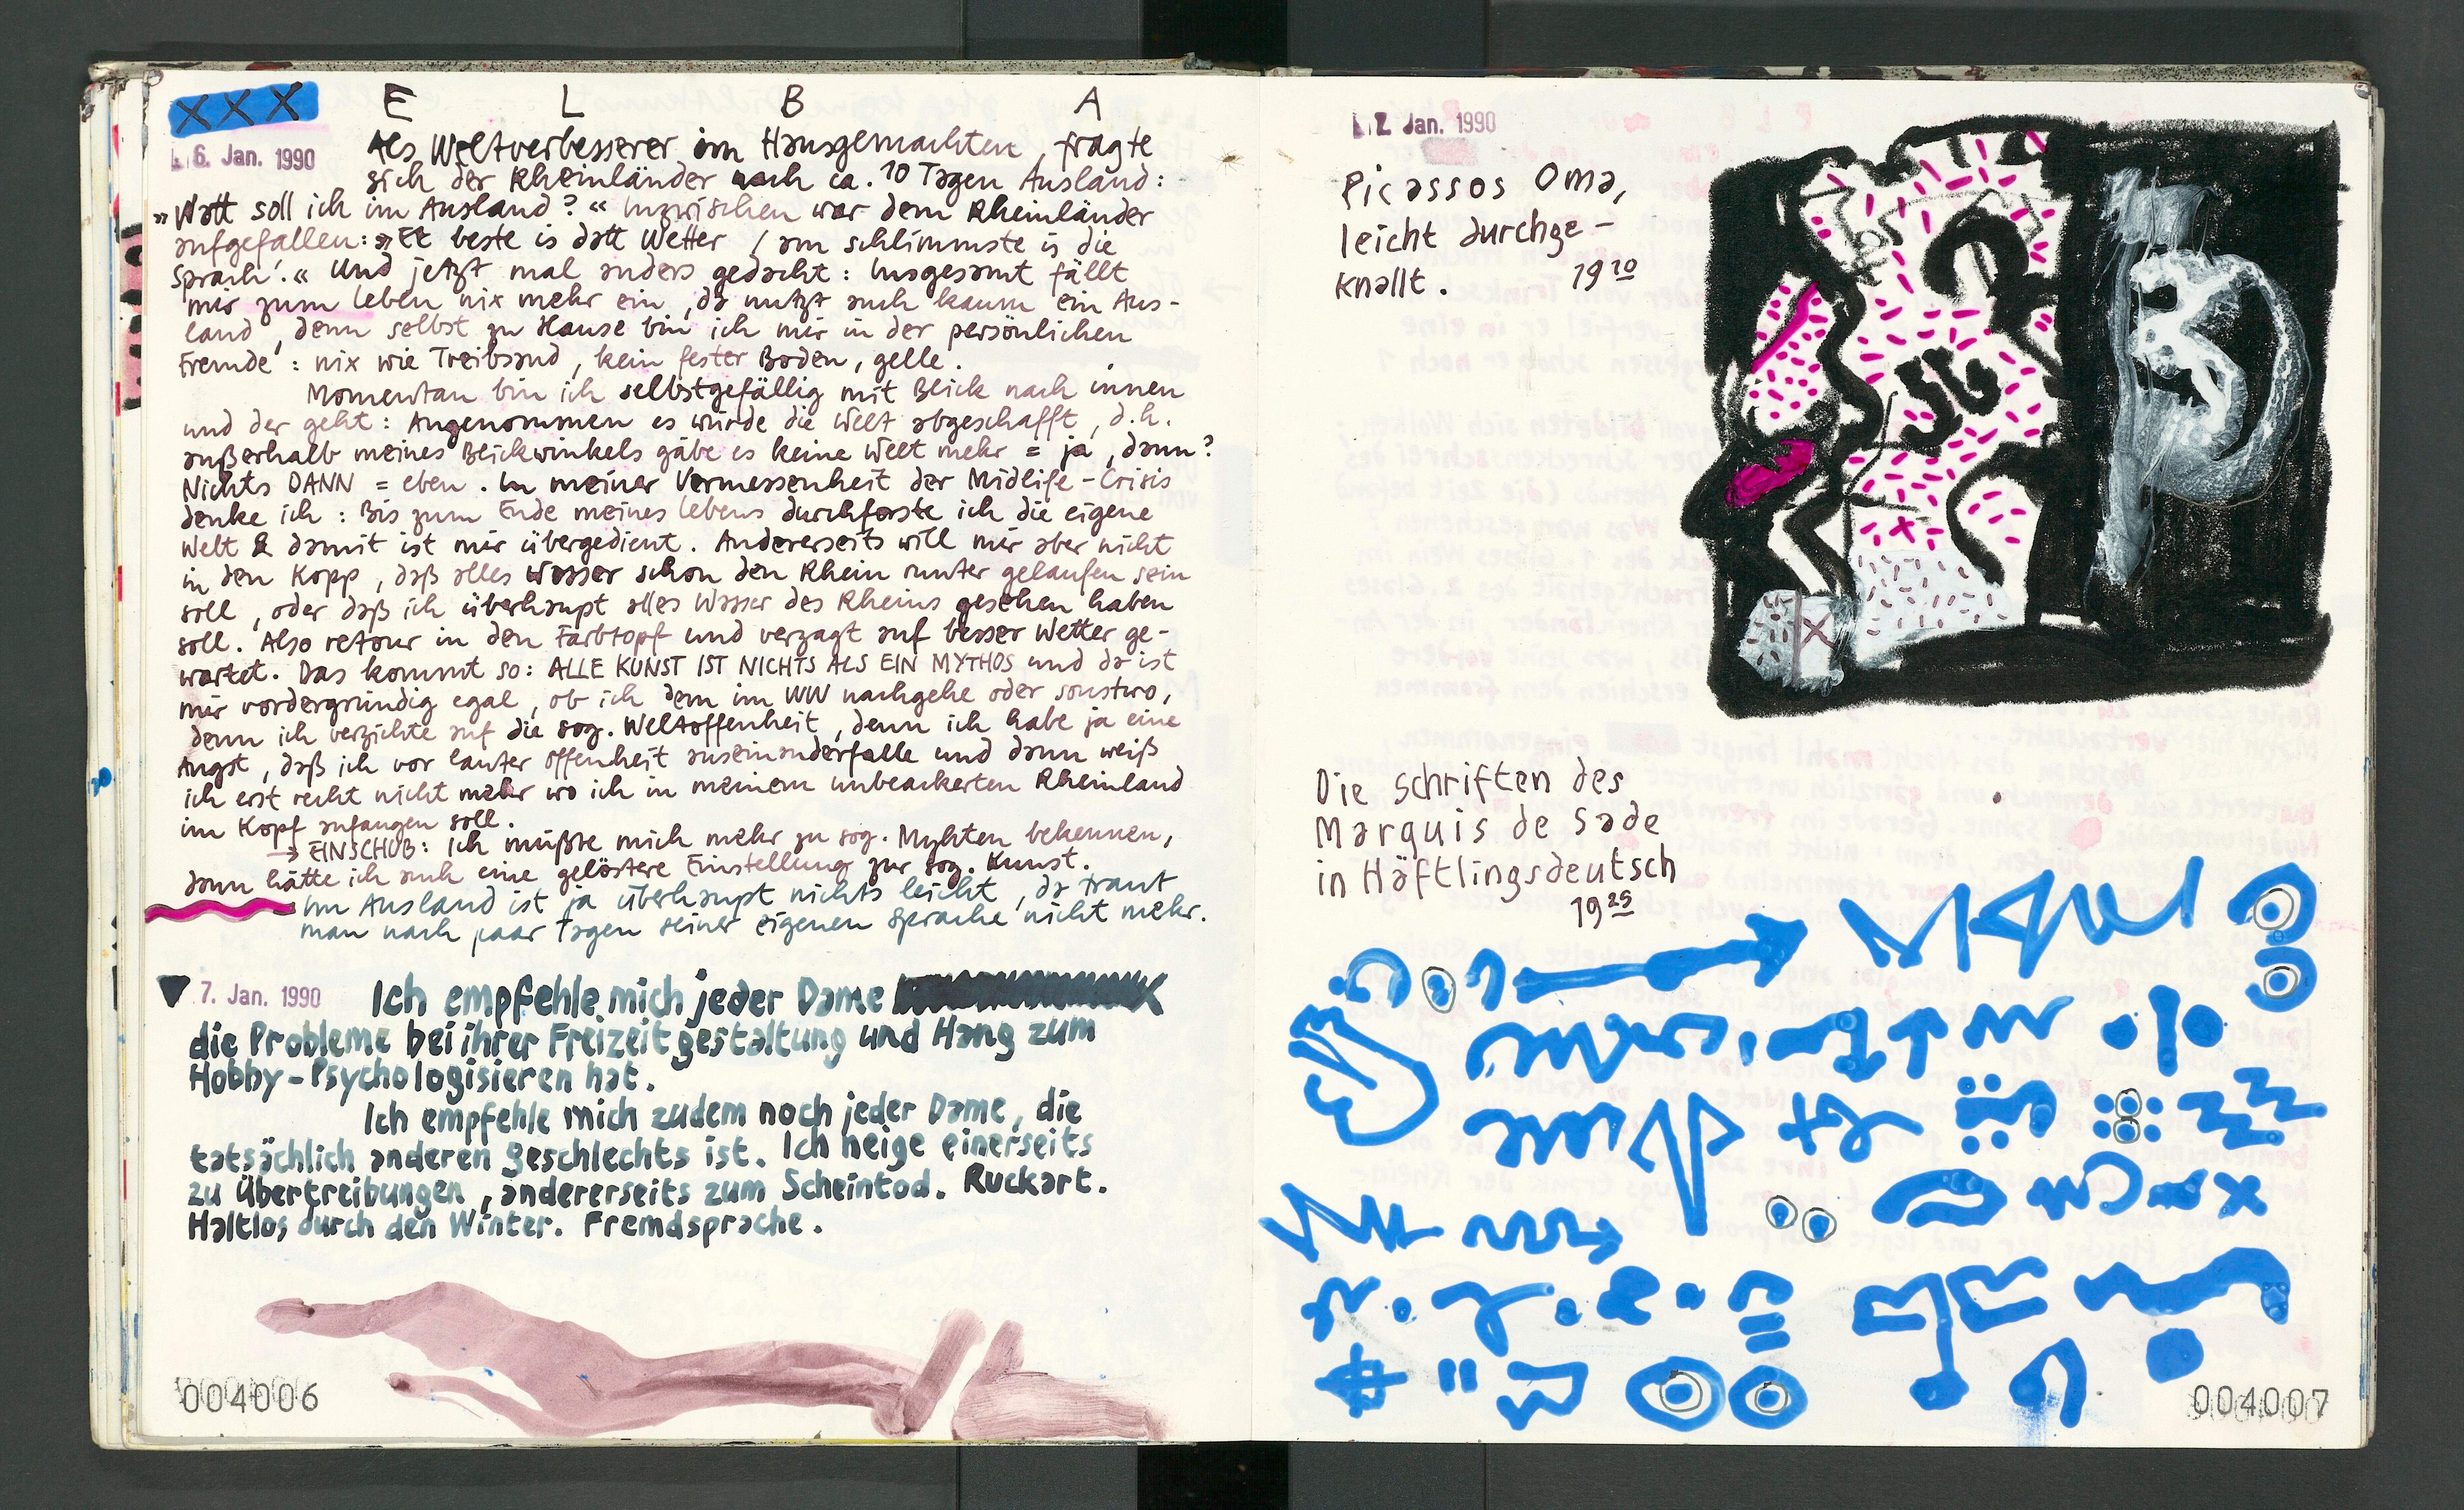 XXX E L B A
6. Jan. 1990
Als Weltverbesserer im Hausgemachten, fragte
sich der Rheinländer nach ca. 10 Tagen Ausland:
»Watt soll ich im Ausland?« Inzwischen war dem Rheinländer
aufgefallen: »Et beste is datt Wetter / am schlimmste is die
Sprach'.« Und jetzt mal anders gedacht: Insgesamt fällt
mir zum Leben nix mehr ein, da nutzt auch kaum ein Aus-
land, denn selbst zu Hause bin ich mir in der persönlichen
Fremde: nix wie Treibsand, kein fester Boden, gelle.
Momentan bin ich selbstgefällig mit Blick nach innen
und der geht: Angenommen es würde die Welt abgeschafft, d.h.
außerhalb meines Blickwinkels gäbe es keine Welt mehr = ja, dann?
Nichts DANN = eben. In meiner Vermessenheit der Midlife-Crisis
denke ich: Bis zum Ende meines Lebens durchforste ich die eigene
Welt & damit ist mir übergedient. Andererseits will mir aber nicht
in den Kopp, daß alles Wasser schon den Rhein runter gelaufen sein
soll, oder daß ich überhaupt alles Wasser des Rheins gesehen haben
soll. Also retour in den Farbtopf und verzagt auf besser Wetter ge-
wartet. Das kommt so: ALLE KUNST IST NICHTS ALS EIN MYTHOS und da ist
mir vordergründig egal, ob ich dem im WW nachgehe oder sonstwo,
denn ich verzichte auf die sog. Weltoffenheit, denn ich habe ja eine
Angst, daß ich vor lauter Offenheit auseinanderfalle und dann weiß
ich erst recht nicht mehr wo ich in meinem unbeackerten Rheinland
im Kopf anfangen soll.
→ EINSCHUB: Ich müßte mich mehr zu sog. Myhten bekennen,
dann hätte ich auch eine gelöstere Einstellung zur sog. Kunst.
Im Ausland ist ja überhaupt nichts leicht, da traut
man nach paar Tagen seiner eigenen Sprache nicht mehr.
7. Jan. 1990
Ich empfehle mich jeder Dame
die Probleme bei ihrer Freizeitgestaltung und Hang zum
Hobby-Psychologisieren hat.
Ich empfehle mich zudem noch jeder Dame, die
tatsächlich anderen Geschlechts ist. Ich neige einerseits
zu Übertreibungen, andererseits zum Scheintod. Ruckart.
Haltlos durch den Winter. Fremdsprache.
004006
Jan. 1990
Picassos Oma,
leicht durchge-
knallt. 1910
Die Schriften des
Marquis de Sade
in Häftlingsdeutsch
1925
004007